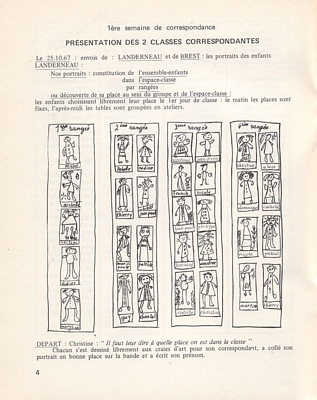 1ère semaine de correspondance
PRÉSENTATION DES 2 CLASSES CORRESPONDANTES
Le 25.10.67 : envois de : LANDERNEAU et de BREST : les portraits des enfants
LANDERNEAU :
Nos portraits : constitution de l'ensemble-enfants
dans l'espace-classe
par rangées
ou découverte de sa place au sein du groupe et de l'espace-classe :
les enfants choisissent librement leur place le 1er jour de classe : le matin les places sont
fixes, l'après-midi les tables sont groupées en ateliers.
rangée
2ème rangée
rangée
rangée
nadine
thierry
jean-paul
philippe
patricia
guy
isabelle
christine
martine
thierry
DEPART : Christine : " Il faut leur dire à quelle place on est dans la classe "
Chacun s'est dessiné librement aux craies d'art pour son correspondant, a collé son
portrait en bonne place sur la bande et a écrit son prénom.
4